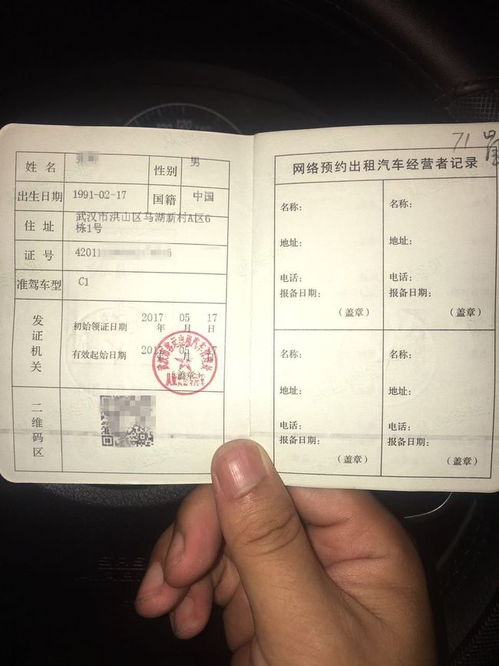 姓 名
性别
男
出生日期
1991-02-17
国籍
中国
住 址
武汉市洪山区马湖新村A区6
栋1号
证 号
42011
6
准驾车型
C1
发证机关
初始领证日期
2017 05 17
年 月 日
有效起始日期
05
月
二维码区
71
网络预约出租汽车经营者记录
名称：
地址：
电话：
报备日期：
（盖章）
名称：
地址：
电话：
报备日期：
（盖章）
名称：
地址：
电话：
报备日期：
（盖章）
名称：
地址：
电话：
报备日期：
（盖章）